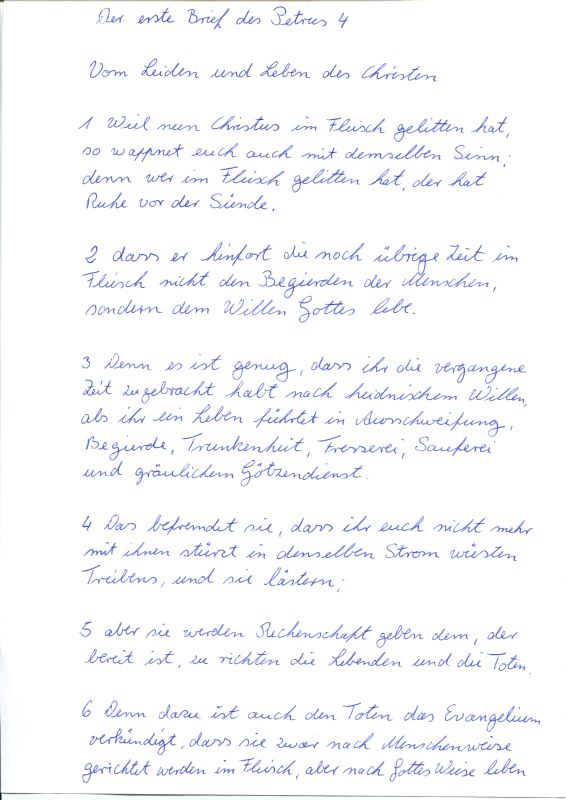 Der erste Brief des Petrus 4
Vom Leiden und Leben des Christen
1 Weil nun Christus im Fleisch gelitten hat,
so wappnet euch auch mit demselben Sinn;
denn wer im Fleisch gelitten hat, der hat
Ruhe vor der Sünde,
2 dass er hinfort die noch übrige Zeit im
Fleisch nicht den Begierden der Menschen,
sondern dem Willen Gottes lebe.
3 Denn es ist genug, dass ihr die vergangene
Zeit zugebracht habt nach heidnischem Willen,
als ihr ein Leben führtet in Ausschweifung,
Begierde, Trunkenheit, Fresserei, Sauferei
und gräulichem Götzendienst.
4 Das befremdet sie, dass ihr euch nicht mehr
mit ihnen stürzt in denselben Strom wüsten
Treibens, und sie lästern;
5 aber sie werden Rechenschaft geben dem, der
bereit ist, zu richten die Lebenden und die Toten.
6 Denn dazu ist auch den Toten das Evangelium
verkündigt, dass sie zwar nach Menschenweise
gerichtet werden im Fleisch, aber nach Gottes Weise leben